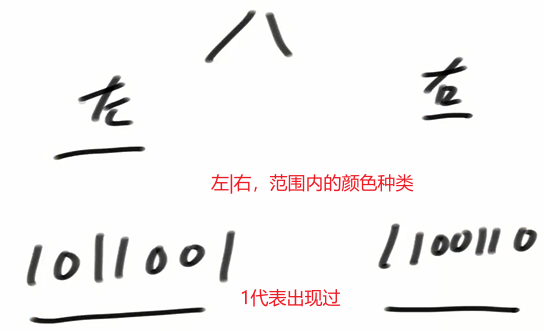 左 右
左|右，范围内的颜色种类
1011001 1100110
1代表出现过